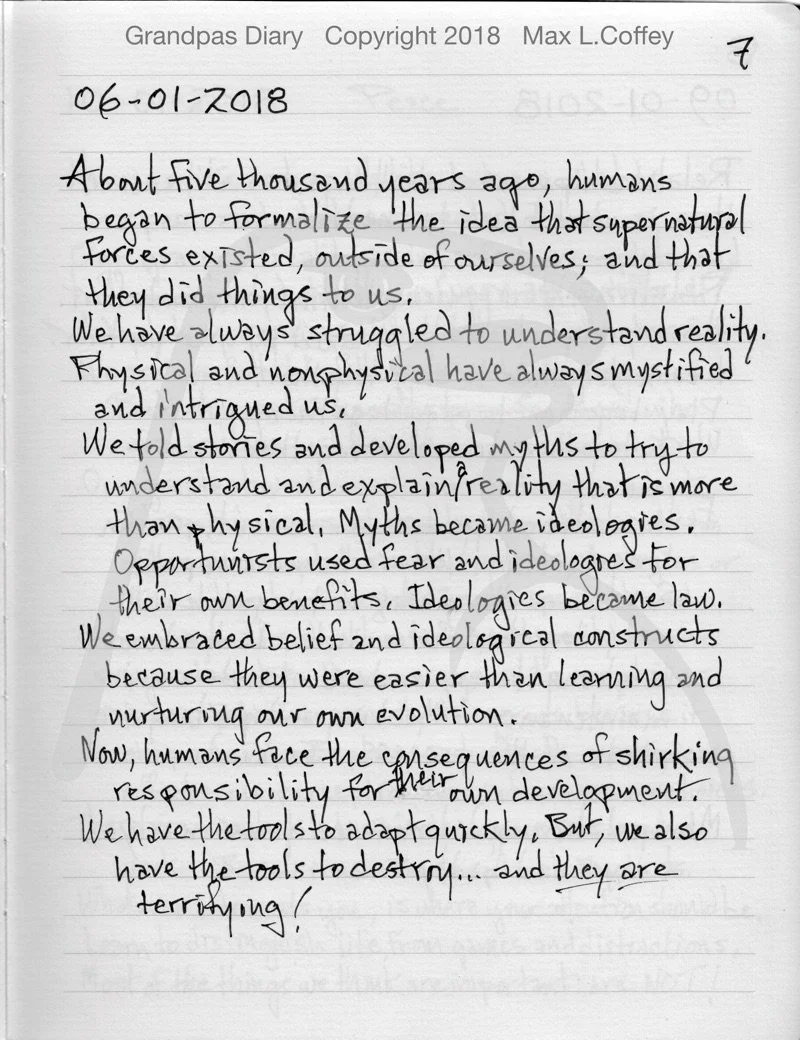 Grandpas Diary Copyright 2018 Max L.Coffey
7
06-01-2018
About five thousand years ago, humans
began to formalize the idea that supernatural
forces existed, outside of ourselves; and that
they did things to us.
We have always struggled to understand reality.
Physical and nonphysical have always mystified
and intrigued us.
We told stories and developed myths to try to
understand and explain a reality that is more
than physical. Myths became ideologies.
Opportunists used fear and ideologies for
their own benefits. Ideologies became law.
We embraced belief and ideological constructs
because they were easier than learning and
nurturing our own evolution.
Now, humans face the consequences of shirking
responsibility for their own development.
We have the tools to adapt quickly. But, we also
have the tools to destroy... and they are
terrifying!